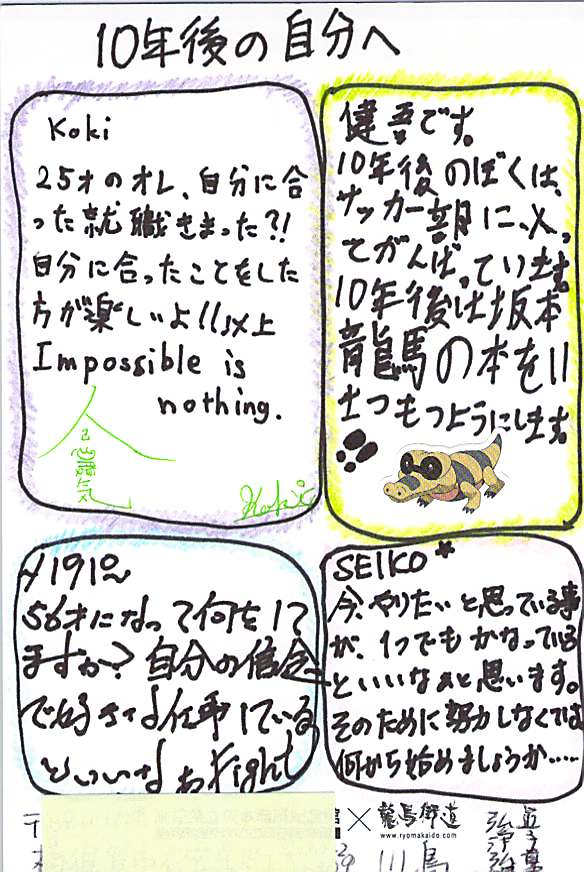 10年後の自分へ
Koki
25才のオレ、自分に合
った就職きまった?!
自分に合ったことをした
方が楽しいよ!!以上
Impossible is
nothing.
Koki
健吾です。
10年後のぼくは、
サッカー部に入っ
てがんばっています。
10年後は坂本
龍馬の本を11
さつもつようにします。
56才になって何をして
ますか?自分の信念
で好きな仕事している
といいなぁFight
SEIKO*
今、やりたいと思っている事
が、1つでもかなっている
といいなぁと思います。
そのために努力しなくては
何から始めましょうか……
館×龍馬街道
www.ryomakaido.com
川島